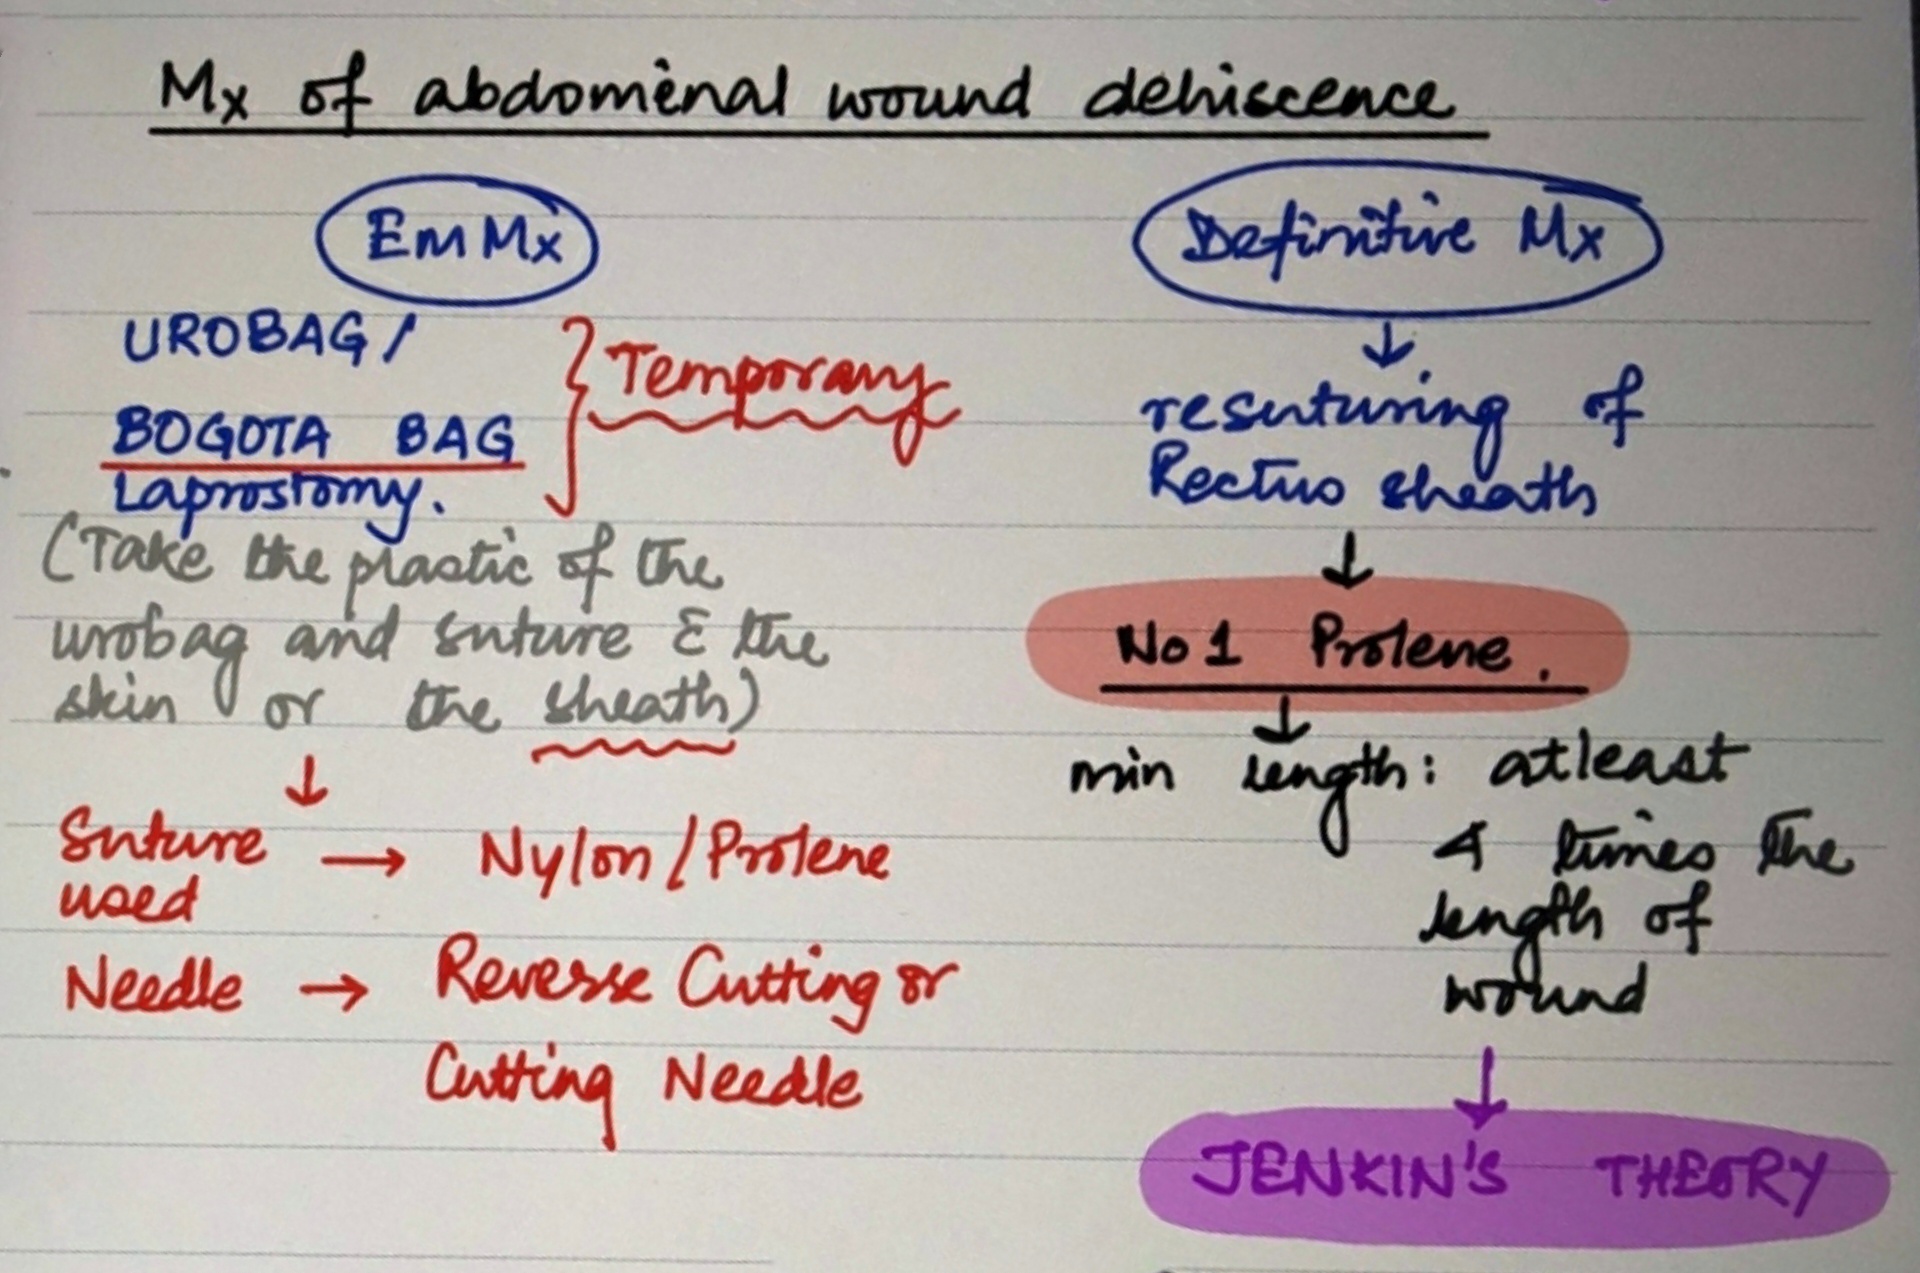 Mx of abdominal wound dehiscence
Em Mx
UROBAG /
BOGOTA BAG
Laprostomy.
Temporary
(Take the plastic of the
urobag and suture c̄ the
skin or the sheath)
Suture used → Nylon / Prolene
Needle → Reverse Cutting or
Cutting Needle
Definitive Mx
↓
resuturing of
Rectus sheath
↓
No 1 Prolene.
↓
min length: atleast
4 times the
length of
wound
↓
JENKIN'S THEORY